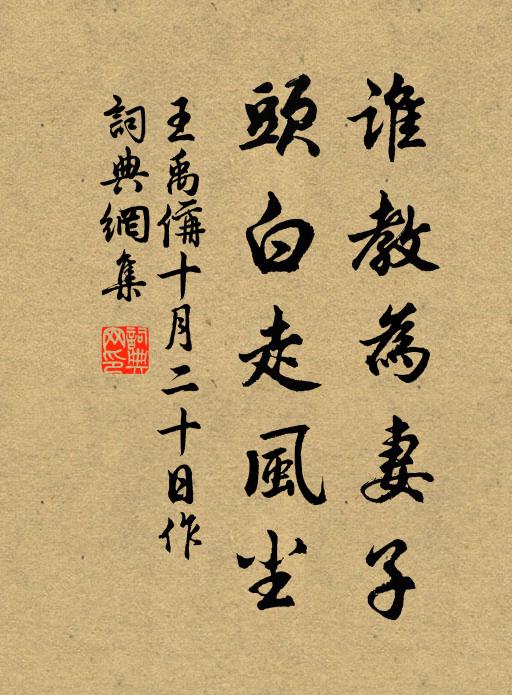 誰教為妻子
頭白走風尘
王禹偁十月二十日作
詞典網集
詞典
网印